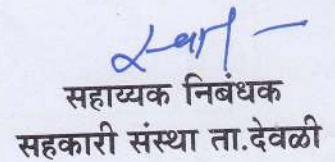 सहाय्यक निबंधक
सहकारी संस्था ता.देवळी